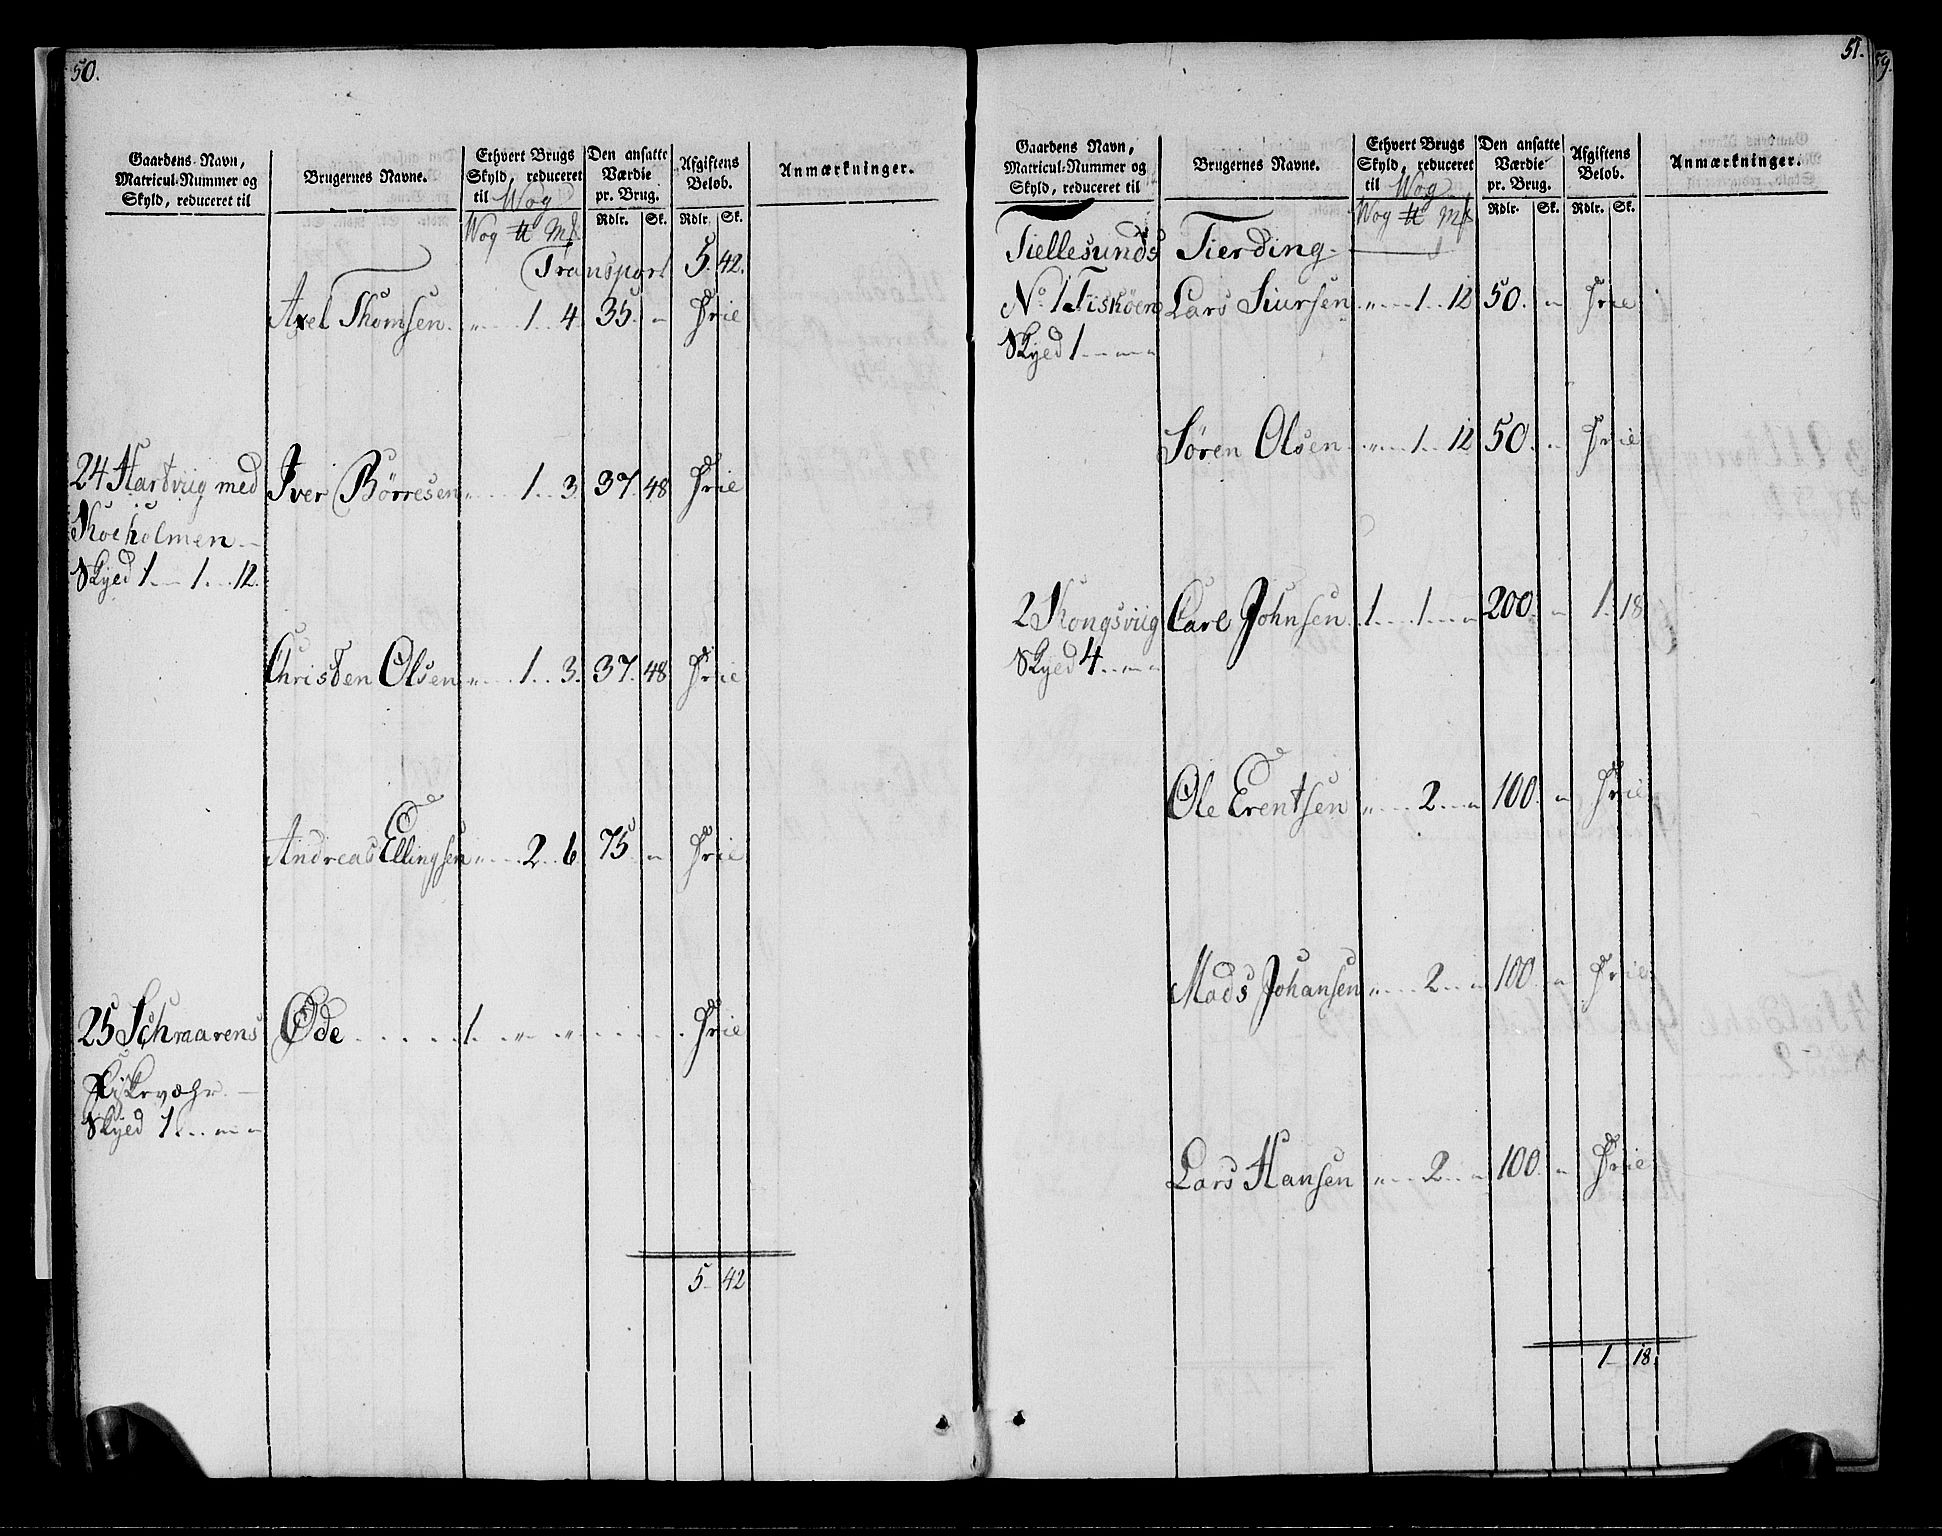 50.
Gaardens Navn, Matricul-Nummer og Skyld, reduceret til
Brugernes Navne.
Ethvert Brugs Skyld, reduceret til Wog
Den ansatte Værdie pr. Brug.
Afgiftens Beløb.
Anmærkninger.
Wog ℔ Mk Rdlr. Sk. Rdlr. Sk.
Transport 5. 42.
Axel Thomsen. „ 1. 4. 35. „ Frie
24 Hartviig med Iver Børresen „ 1. 3. 37. 48 Frie
Koeholmen
Skyed 1 1. 12.
Christen Olsen „ 1. 3. 37. 48 Frie
Andreas Ellingsen „ 2. 6. 75. „ Frie
25 Schraarens Øde 1. „ „ Frie
Fiskevæhr
Skyed 1. „ „
5. 42
51.
59.
Gaardens Navn, Matricul-Nummer og Skyld, reduceret til
Brugernes Navne.
Ethvert Brugs Skyld, reduceret til Wog
Den ansatte Værdie pr. Brug.
Afgiftens Beløb.
Anmærkninger.
Wog ℔ Mk Rdlr. Sk. Rdlr. Sk.
Tiellesunds Fierding
No. 1 Fiskøen Lars Siursen „ 1. 12 50. „ Frie
Skyed 1 „ „
Søren Olsen „ 1. 12 50. „ Frie
2 Kongsviig Carl Johnsen 1. 1. „ 200. „ 1. 18
Skyed 4. „ „
Ole Erentsen „ 2. „ 100. „ Frie
Mads Johansen „ 2. „ 100. „ Frie
Lars Hansen „ 2. „ 100. „ Frie
1. 18.